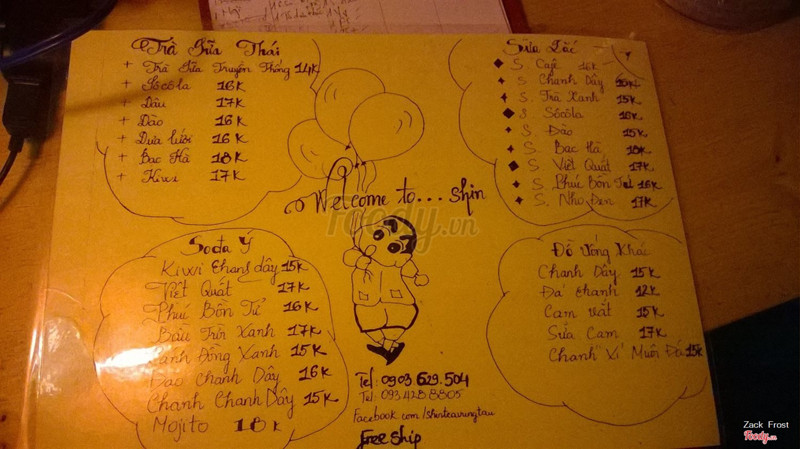 Trà Sữa Thái
+ Trà Sữa Truyền Thống 14K
+ Sôcôla 16K
+ Dâu 17K
+ Đào 16K
+ Dưa lưới 16K
+ Bạc Hà 18K
+ Kiwi 17K
Sữa Lắc
S. Cafe 15K
S. Chanh Dây
S. Trà Xanh 15K
S Sôcôla 16K
S. Đào 15K
S. Bạc Hà 18K
S. Việt Quất 17K
S. Phúc Bồn Tử 16K
S. Nho Đen 17K
Welcome to... Shin
Soda Ý
Kiwi Chanh dây 15K
Việt Quất 17K
Phúc Bồn Tử 16K
Bưởi Xanh 17K
Xanh 15K
Đào Chanh Dây 16K
Chanh Chanh Dây 15K
Mojito 18K
Đồ Uống Khác
Chanh Dây 15K
Đá chanh 12K
Cam vắt 15K
Sữa Cam 17K
Chanh Xí Muội Đá 15K
Tel: 0903 629.504
Tel: 093 428 8805
Facebook.com/shinteavungtau
Free ship
Foody.vn
Zack Frost
Foody.vn